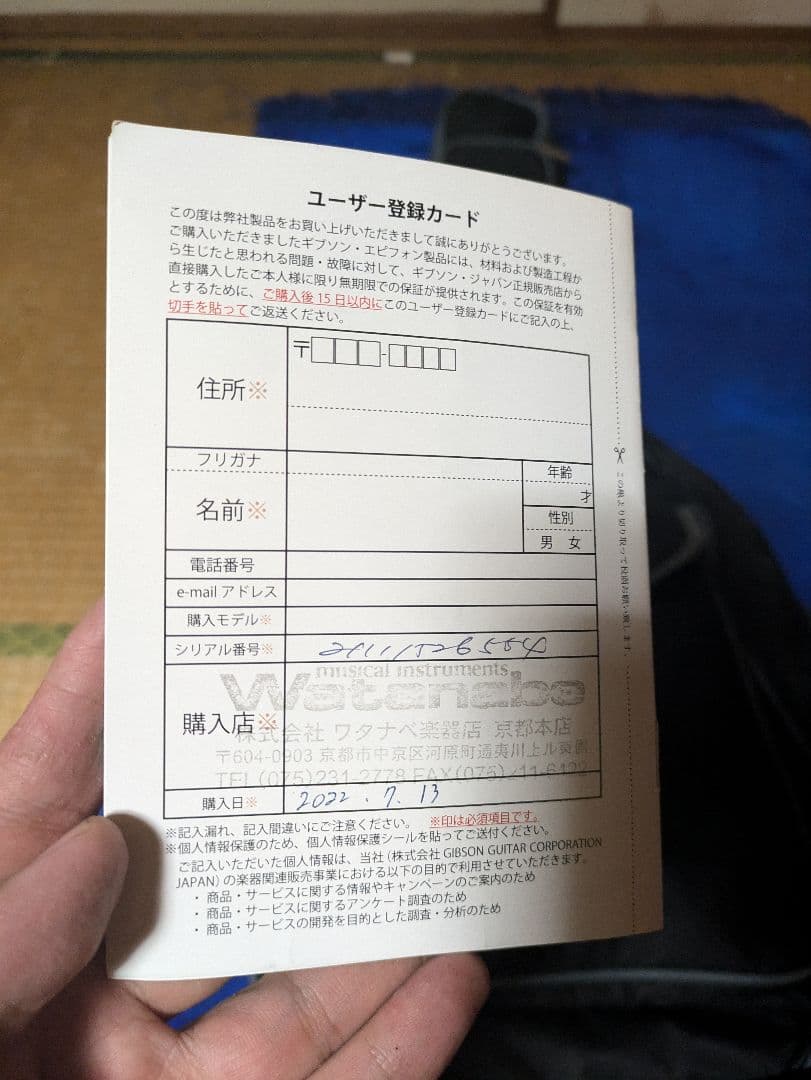 ユーザー登録カード
この度は弊社製品をお買い上げいただきまして誠にありがとうございます。
ご購入いただきましたギブソン・エピフォン製品には、材料および製造工程か
ら生じたと思われる問題・故障に対して、ギブソン・ジャパン正規販売店から
直接購入したご本人様に限り無期限での保証が提供されます。この保証を有効
とするために、ご購入後15日以内にこのユーザー登録カードにご記入の上、
切手を貼ってご返送ください。
住所※
〒
フリガナ
年齢
才
名前※
性別
男 女
電話番号
e-mail アドレス
購入モデル※
シリアル番号※
購入店※
musical instruments
Watanabe
株式会社 ワタナベ楽器店 京都本店
〒604-0903 京都市中京区河原町通夷川上ル東側
TEL(075)231-2778 FAX(075)
購入日※ 2022.7.13
※記入漏れ、記入間違いにご注意ください。 ※印は必須項目です。
※個人情報保護のため、個人情報保護シールを貼ってご送付ください。
ご記入いただいた個人情報は、当社(株式会社 GIBSON GUITAR CORPORATION
JAPAN)の楽器関連販売事業における以下の目的で利用させていただきます。
・商品・サービスに関する情報やキャンペーンのご案内のため
・商品・サービスに関するアンケート調査のため
・商品・サービスの開発を目的とした調査・分析のため